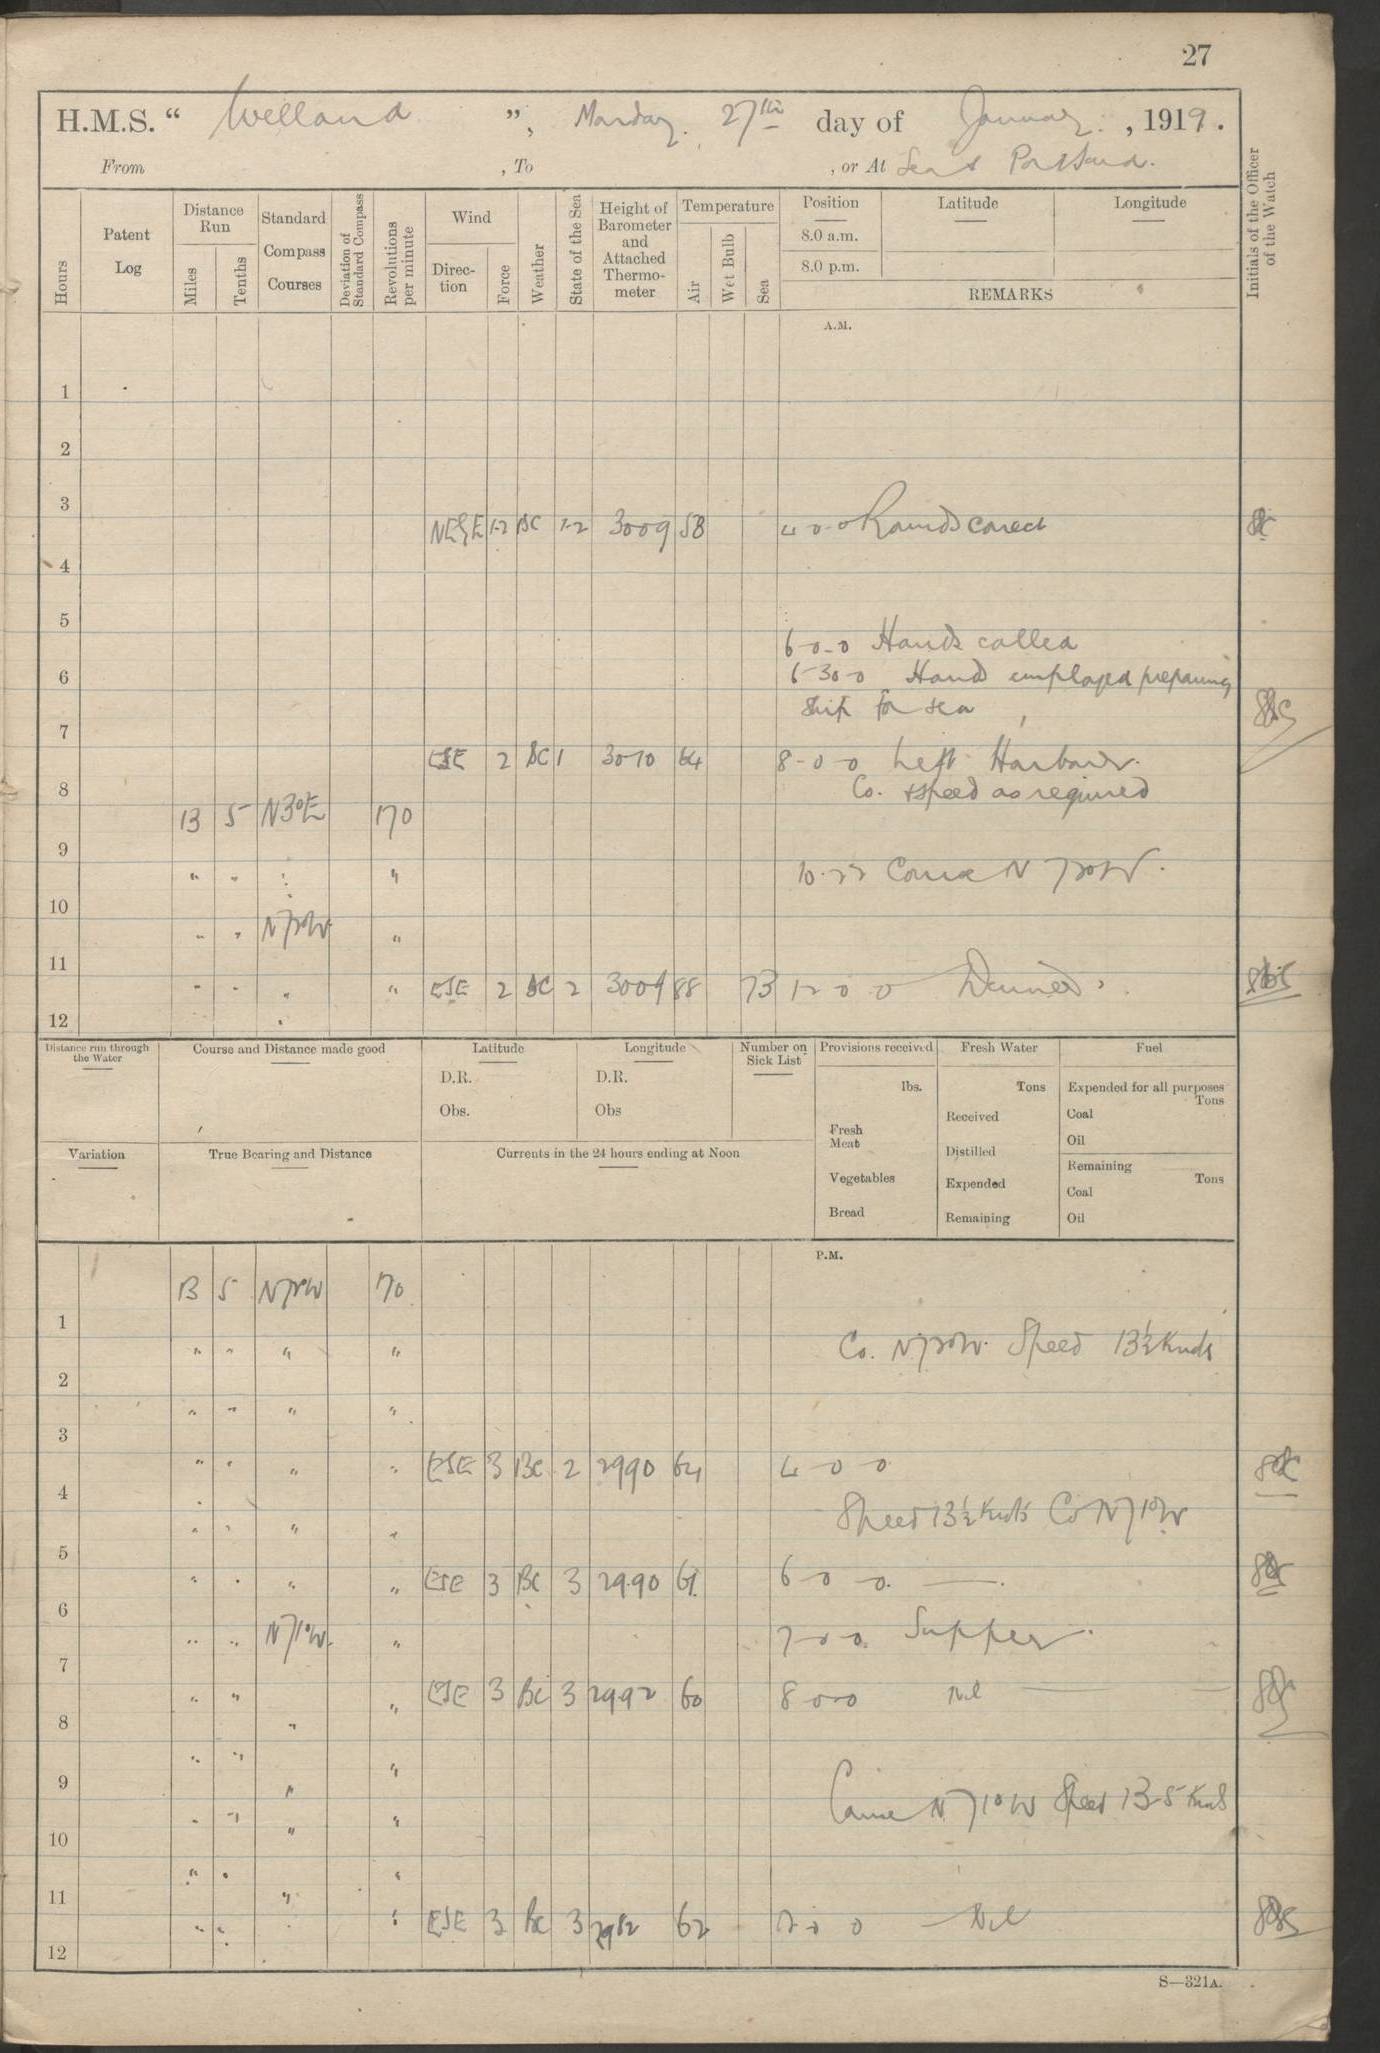 27
H.M.S. “ Welland ”, Monday. 27th day of January. , 1919.
From , To , or At Sea & Port Said.
Hours
Patent Log
Distance Run
Miles
Tenths
Standard Compass Courses
Deviation of Standard Compass
Revolutions per minute
Wind
Direction
Force
Weather
State of the Sea
Height of Barometer and Attached Thermometer
Temperature
Air
Wet Bulb
Sea
Position
8.0 a.m.
8.0 p.m.
Latitude
Longitude
REMARKS
Initials of the Officer of the Watch
A.M.
1
2
3
1-2 BC 1-2 3009 58 4-0-0 Rounds correct
4
5
6-0-0 Hands called
6 6-30-0 Hand employed preparing
ship for sea
7
ESE 2 BC 1 3010 64 8-0-0 Left Harbour.
8 Co. & speed as required
13 5 N3°E 170
9
" " : " 10.22 Course N 72°W.
10
" " N72°W "
11
" " " " ESE 2 BC 2 3009 88 73 12 0 0 Dinner.
12
Distance run through the Water
Course and Distance made good
Latitude
D.R.
Obs.
Longitude
D.R.
Obs
Number on Sick List
Provisions received
lbs.
Fresh Meat
Vegetables
Bread
Fresh Water
Tons
Received
Distilled
Expended
Remaining
Fuel
Expended for all purposes
Tons
Coal
Oil
Remaining
Tons
Coal
Oil
Variation
True Bearing and Distance
Currents in the 24 hours ending at Noon
P.M.
13 5 N72°W 170
1
" " " " Co. N72°W. Speed 13½ Knots
2
" " " "
3
" " " " ESE 3 BC 2 2990 64 4 0 0
4
" " " " Speed 13½ Knots Co N71°W
5
" " " " ESE 3 BC 3 29.90 61. 6 0 0. —
6
" " N71°W. " 7-0 0. Supper.
7
" " " ESE 3 BC 3 2992 60 8 0-0 Nil
8 "
" " "
9 " Course N 71°W Speed 13-5 Knots
" " " "
10
" " "
11 "
" " " ESE 3 BC 3 2982 62 12 0 0 — Nil
12
S—321A.